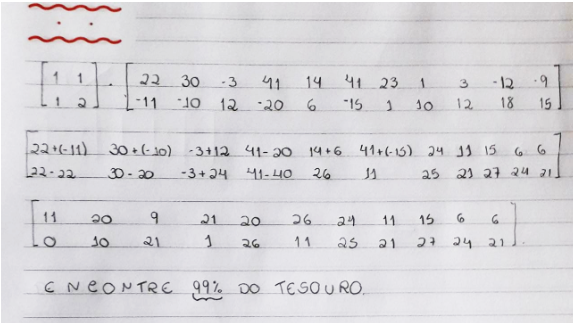 [1 1] · [22 30 -3 41 14 41 23 1 3 -12 -9]
[1 2] [-11 -10 12 -20 6 -15 1 10 12 18 15]
[22+(-11) 30+(-10) -3+12 41-20 14+6 41+(-15) 24 11 15 6 6]
[22-22 30-20 -3+24 41-40 26 11 25 21 27 24 21]
[11 20 9 21 20 26 24 11 15 6 6]
[0 10 21 1 26 11 25 21 27 24 21].
ENCONTRE 99% DO TESOURO.